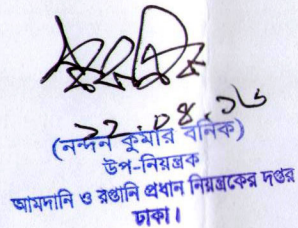 ২২.০৪.১৬
(নন্দন কুমার বনিক)
উপ-নিয়ন্ত্রক
আমদানি ও রপ্তানি প্রধান নিয়ন্ত্রকের দপ্তর
ঢাকা।